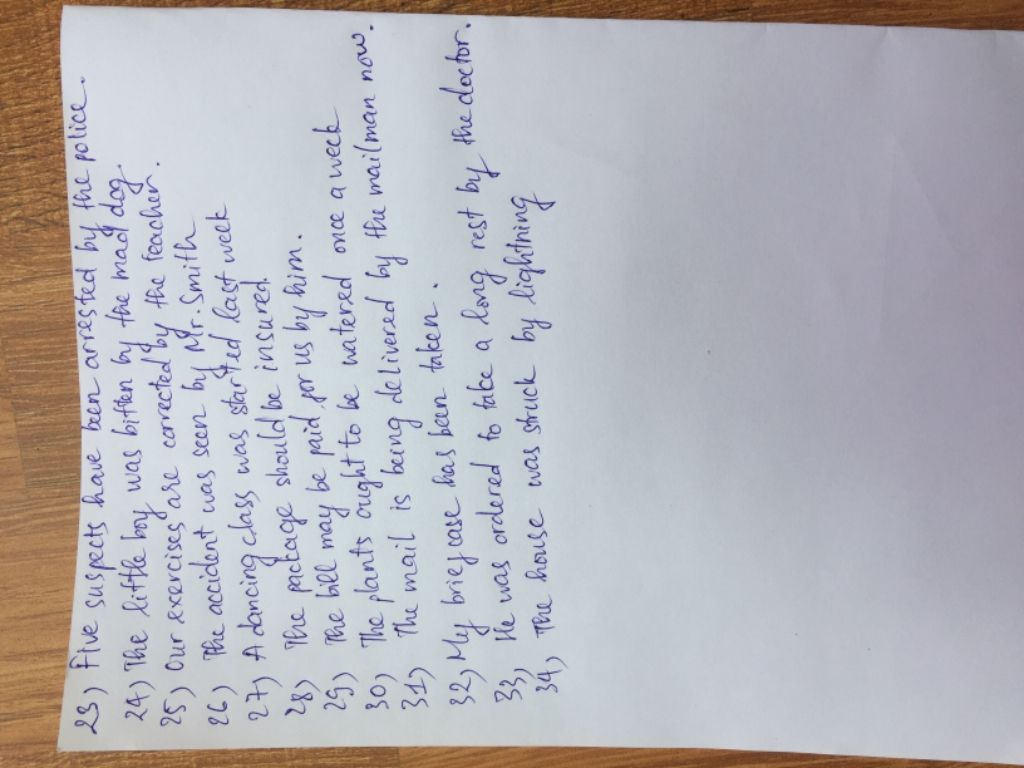 23) Five suspects have been arrested by the police.
24) The little boy was bitten by the mad dog.
25) Our exercises are corrected by the teacher.
26) The accident was seen by Mr. Smith
27) A dancing class was started last week
28) The package should be insured.
29) The bill may be paid for us by him.
30) The plants ought to be watered once a week
31) The mail is being delivered by the mailman now.
32) My briefcase has been taken.
33) He was ordered to take a long rest by the doctor.
34) The house was struck by lightning